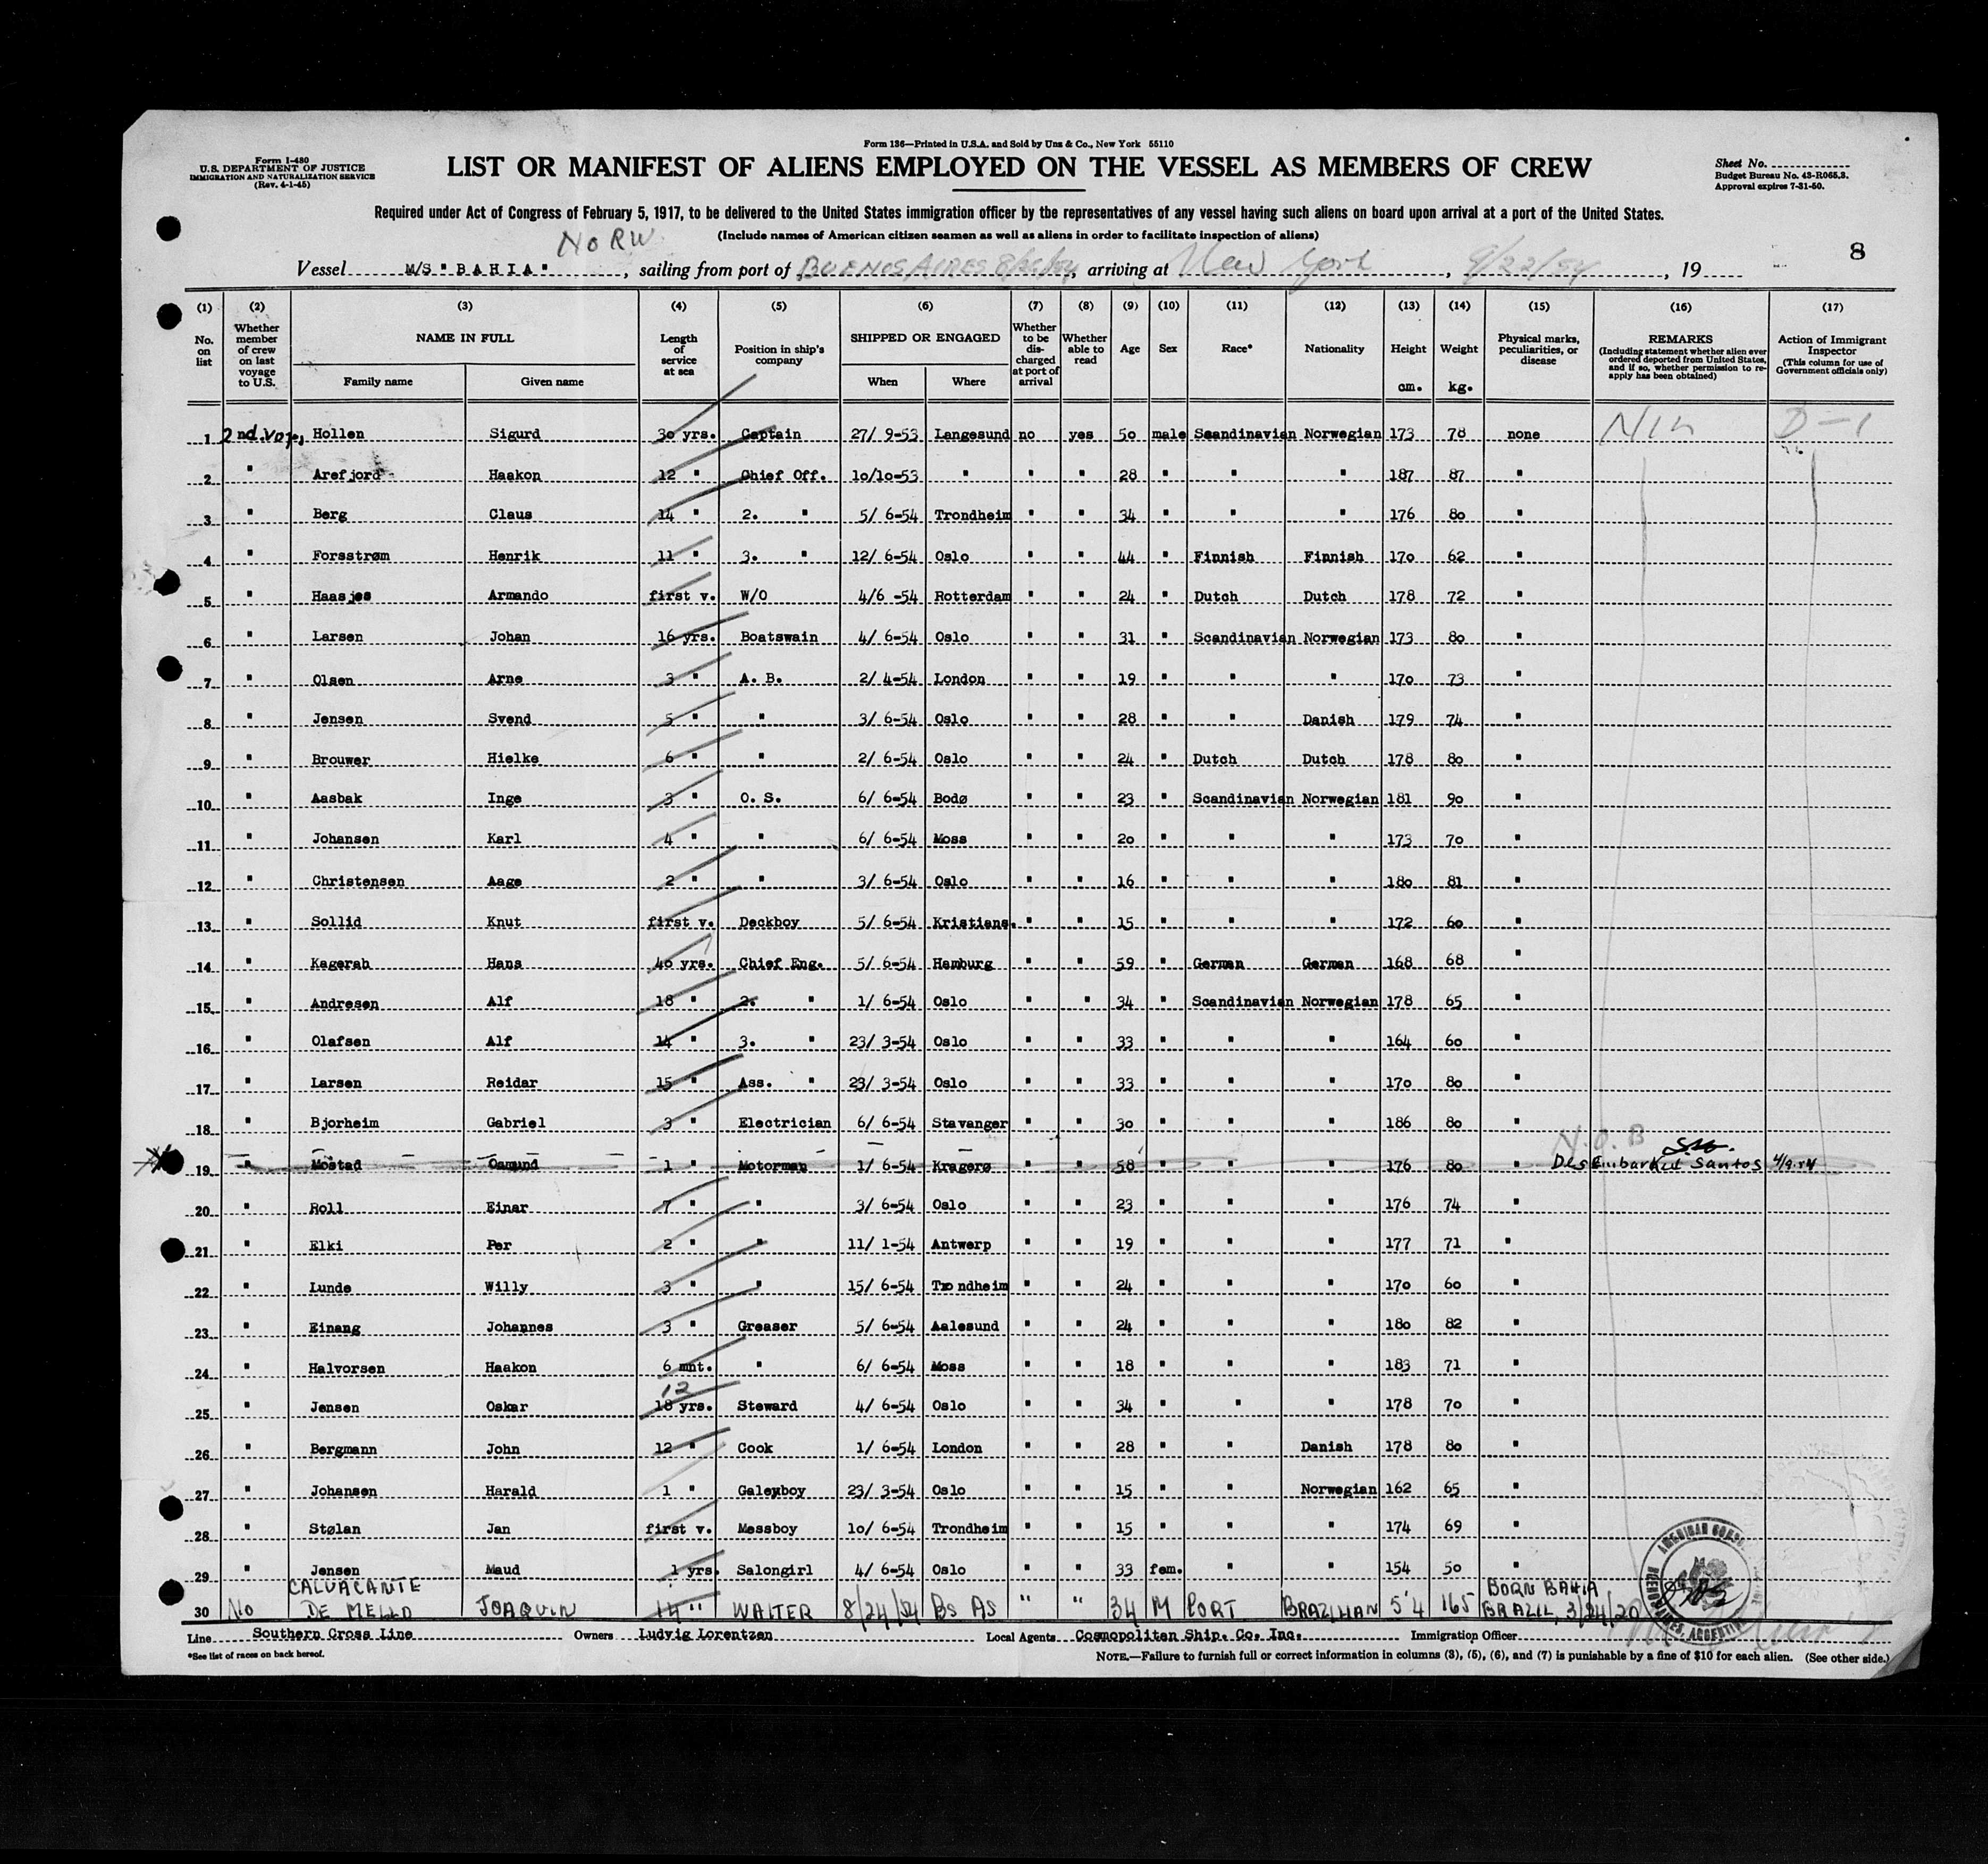 Form 136—Printed in U.S.A. and Sold by Unz & Co., New York 55110
Form I-480
U.S. DEPARTMENT OF JUSTICE
IMMIGRATION AND NATURALIZATION SERVICE
(Rev. 4-1-45)
LIST OR MANIFEST OF ALIENS EMPLOYED ON THE VESSEL AS MEMBERS OF CREW
Sheet No.
Budget Bureau No. 43-R065.3.
Approval expires 7-31-50.
Required under Act of Congress of February 5, 1917, to be delivered to the United States immigration officer by the representatives of any vessel having such aliens on board upon arrival at a port of the United States.
(Include names of American citizen seamen as well as aliens in order to facilitate inspection of aliens)
NORW
8
Vessel M/S "BAHIA", sailing from port of BUENOS AIRES 8/26/54, arriving at New York, 9/22/54, 19
(1) No. on list (2) Whether member of crew on last voyage to U.S. (3) NAME IN FULL Family name Given name (4) Length of service at sea (5) Position in ship's company (6) SHIPPED OR ENGAGED When Where (7) Whether to be discharged at port of arrival (8) Whether able to read (9) Age (10) Sex (11) Race* (12) Nationality (13) Height cm. (14) Weight kg. (15) Physical marks, peculiarities, or disease (16) REMARKS (Including statement whether alien ever ordered deported from United States, and if so, whether permission to reapply has been obtained) (17) Action of Immigrant Inspector (This column for use of Government officials only)
1 2nd.voy. Hollen Sigurd 30 yrs. Captain 27/ 9-53 Langesund no yes 50 male Scandinavian Norwegian 173 78 none D-1
2 " Arefjord Haakon 12 " Chief Off. 10/10-53 " " " 28 " " " 187 87 "
3 " Berg Claus 14 " 2. " 5/ 6-54 Trondheim " " 34 " " " 176 80 "
4 " Forsstrøm Henrik 11 " 3. " 12/ 6-54 Oslo " " 44 " Finnish Finnish 170 62 "
5 " Haasjes Armando first v. W/O 4/6 -54 Rotterdam " " 24 " Dutch Dutch 178 72 "
6 " Larsen Johan 16 yrs. Boatswain 4/ 6-54 Oslo " " 31 " Scandinavian Norwegian 173 80 "
7 " Olsen Arne 3 " A. B. 2/ 4-54 London " " 19 " " " 170 73 "
8 " Jensen Svend 5 " " 3/ 6-54 Oslo " " 28 " " Danish 179 74 "
9 " Brouwer Hielke 6 " " 2/ 6-54 Oslo " " 24 " Dutch Dutch 178 80 "
10 " Aasbak Inge 3 " O. S. 6/ 6-54 Bodø " " 23 " Scandinavian Norwegian 181 90 "
11 " Johansen Karl 4 " " 6/ 6-54 Moss " " 20 " " " 173 70 "
12 " Christensen Aage 2 " " 3/ 6-54 Oslo " " 16 " " " 180 81 "
13 " Sollid Knut first v. Deckboy 5/ 6-54 Kristians. " " 15 " " " 172 60 "
14 " Kagerah Hans 40 yrs. Chief Eng. 5/ 6-54 Hamburg " " 59 " German German 168 68 "
15 " Andresen Alf 18 " 2. " 1/ 6-54 Oslo " " 34 " Scandinavian Norwegian 178 65 "
16 " Olafsen Alf 14 " 3. " 23/ 3-54 Oslo " " 33 " " " 164 60 "
17 " Larsen Reidar 15 " Ass. " 23/ 3-54 Oslo " " 33 " " " 170 80 "
18 " Bjorheim Gabriel 3 " Electrician 6/ 6-54 Stavanger " " 30 " " " 186 80 "
N.O.B
19 " Mostad Osmund 1 " Motorman 1/ 6-54 Kragerø " " 58 " " " 176 80 " Desembarked Santos 4/9.54
20 " Roll Einar 7 " " 3/ 6-54 Oslo " " 23 " " " 176 74 "
21 " Elki Per 2 " " 11/ 1-54 Antwerp " " 19 " " " 177 71 "
22 " Lunde Willy 3 " " 15/ 6-54 Trondheim " " 24 " " " 170 60 "
23 " Einang Johannes 3 " Greaser 5/ 6-54 Aalesund " " 24 " " " 180 82 "
24 " Halvorsen Haakon 6 mnt. " 6/ 6-54 Moss " " 18 " " " 183 71 "
12
25 " Jensen Oskar 18 yrs. Steward 4/ 6-54 Oslo " " 34 " " " 178 70 "
26 " Bergmann John 12 " Cook 1/ 6-54 London " " 28 " " Danish 178 80 "
27 " Johansen Harald 1 " Galeyboy 23/ 3-54 Oslo " " 15 " " Norwegian 162 65 "
28 " Stølan Jan first v. Messboy 10/ 6-54 Trondheim " " 15 " " " 174 69 "
29 " Jensen Maud 1 yrs. Salongirl 4/ 6-54 Oslo " " 33 fem. " " 154 50 "
CALVACANTE BORN BAHIA
30 No DE MELLO JOAQUIN 14 " WAITER 8/24/54 Bs As " " 34 M PORT BRAZILIAN 5'4 165 BRAZIL, 3/24/20
AMERICAN BUENOS AIRES, ARGENTINA
Line Southern Cross Line Owners Ludvig Lorentzen Local Agents Cosmopolitan Ship. Co. Inc. Immigration Officer
*See list of races on back hereof.
NOTE.—Failure to furnish full or correct information in columns (3), (5), (6), and (7) is punishable by a fine of $10 for each alien. (See other side.)